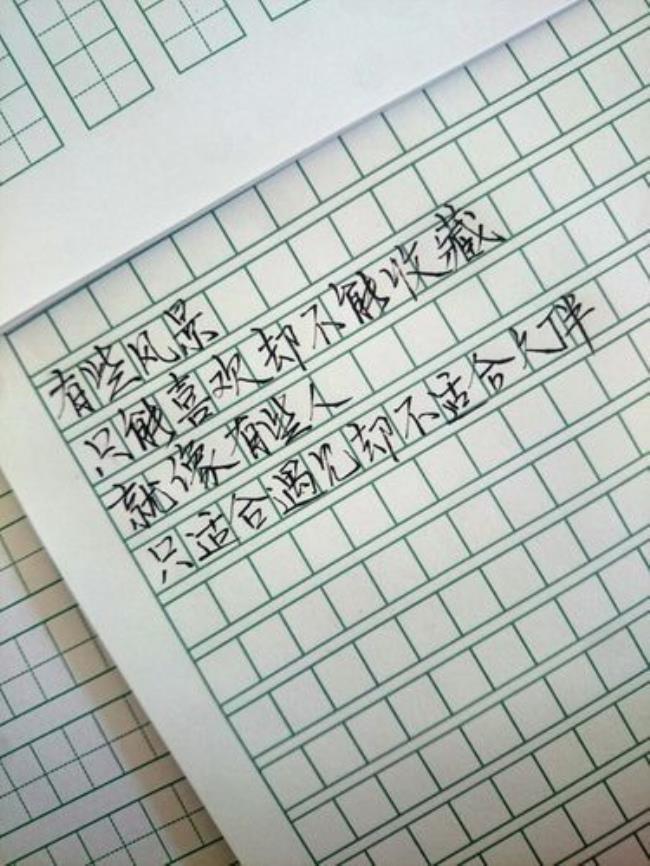 有些风景
只能喜欢却不能收藏
就像有些人
只适合遇见却不适合久伴